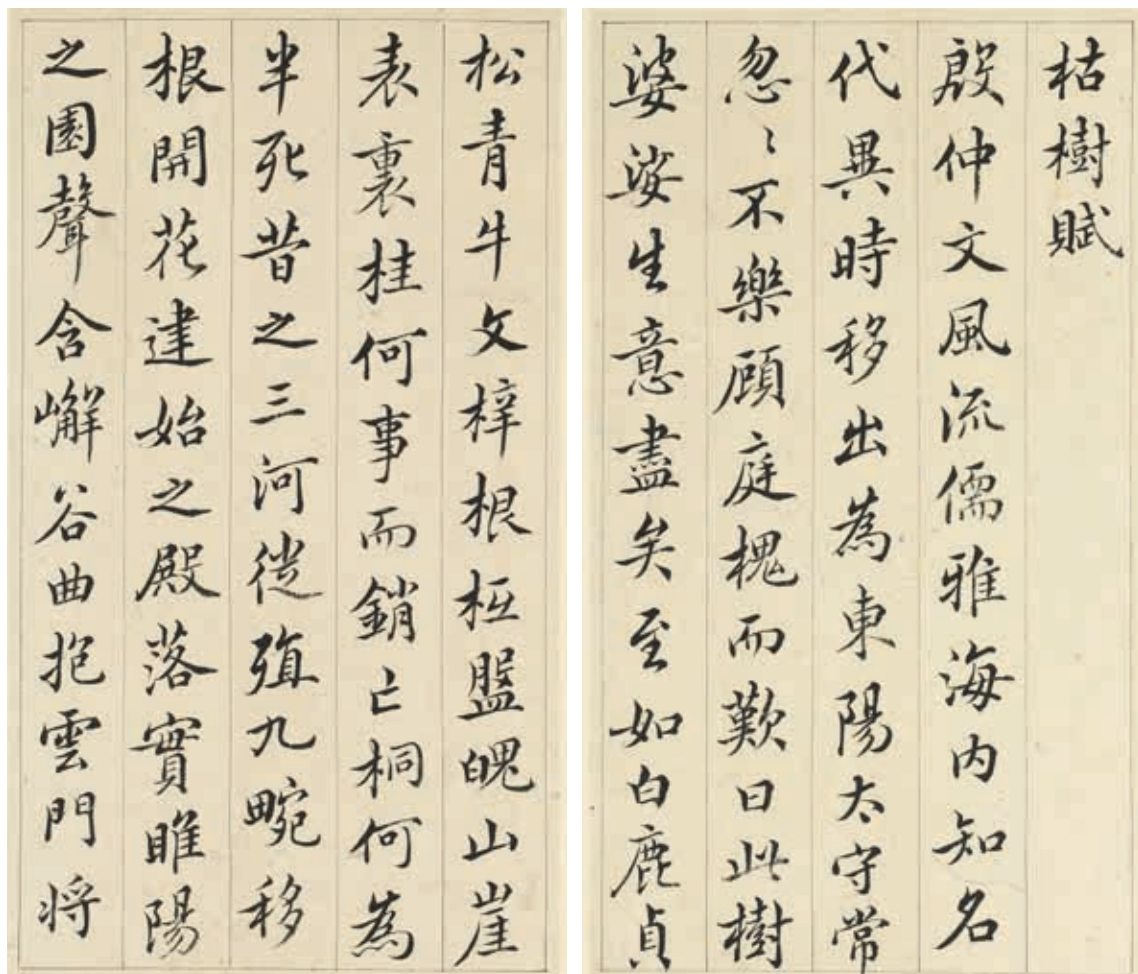 枯樹賦
殷仲文風流儒雅海内知名
代異時移出為東陽太守常
忽〻不樂顧庭槐而歎曰此樹
婆娑生意盡矣至如白鹿貞
松青牛文梓根柢盤魄山崖
表裏桂何事而銷亡桐何為
半死昔之三河徙殖九畹移
根開花建始之殿落實睢陽
之園聲含嶰谷曲抱雲門将